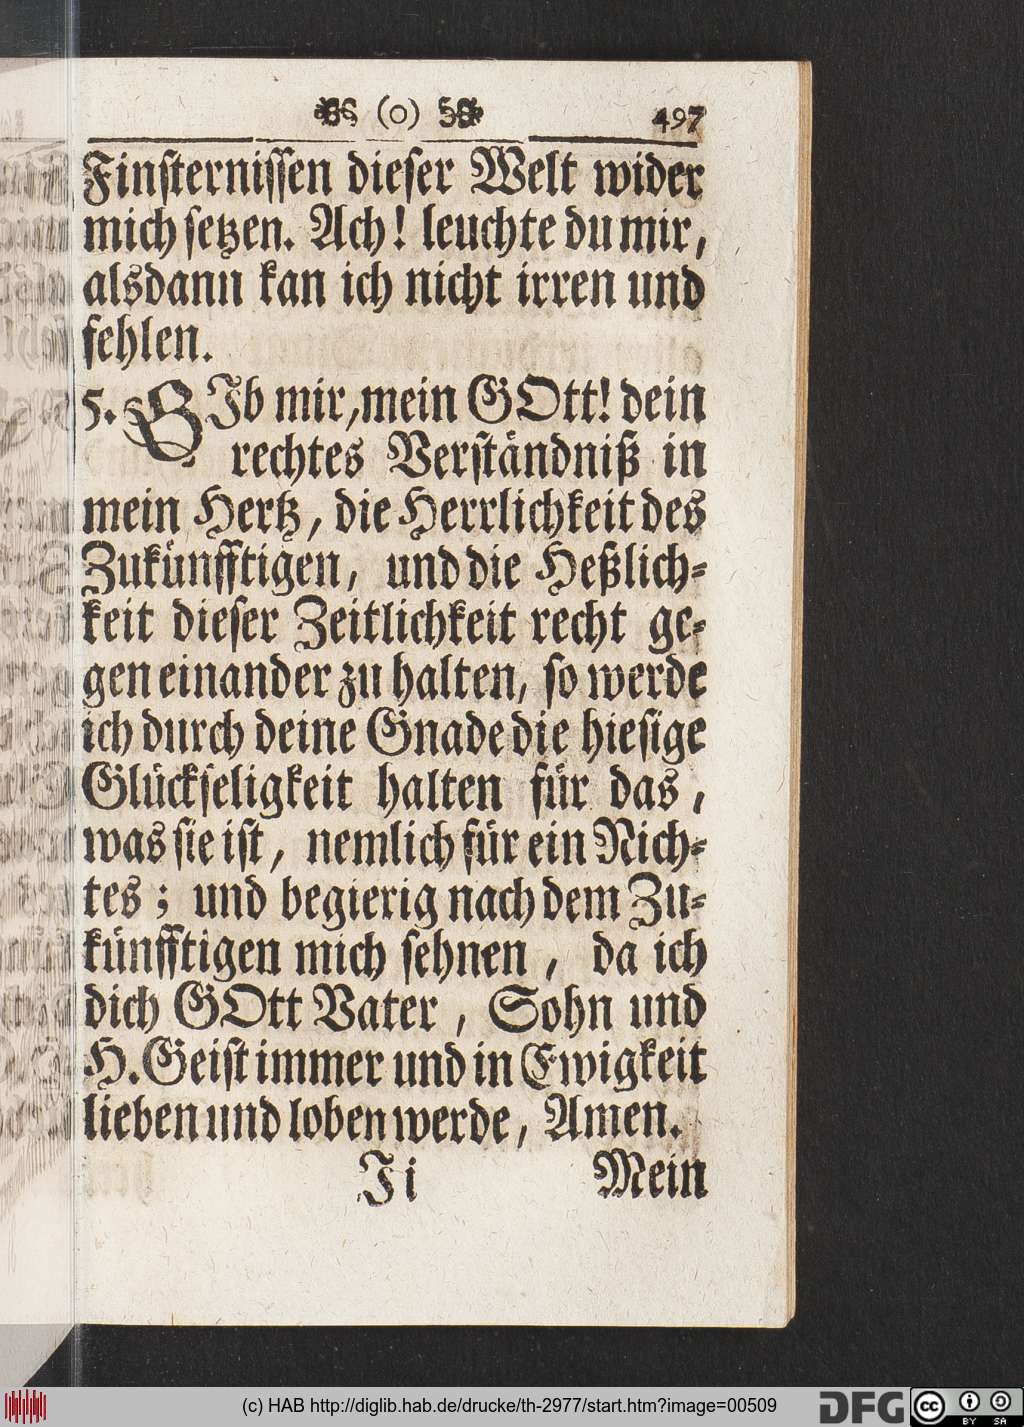 (o) 497
Finsternissen dieser Welt wider
mich setzen. Ach! leuchte du mir,
alsdann kan ich nicht irren und
fehlen.
5. GIb mir, mein GOtt! dein
rechtes Verständniß in
mein Hertz, die Herrlichkeit des
Zukünfftigen, und die Heßlich-
keit dieser Zeitlichkeit recht ge-
gen einander zu halten, so werde
ich durch deine Gnade die hiesige
Glückseligkeit halten für das,
was sie ist, nemlich für ein Nich-
tes; und begierig nach dem Zu-
künfftigen mich sehnen, da ich
dich GOtt Vater, Sohn und
H. Geist immer und in Ewigkeit
lieben und loben werde, Amen.
Ii Mein
(c) HAB http://diglib.hab.de/drucke/th-2977/start.htm?image=00509
DFG cc BY SA